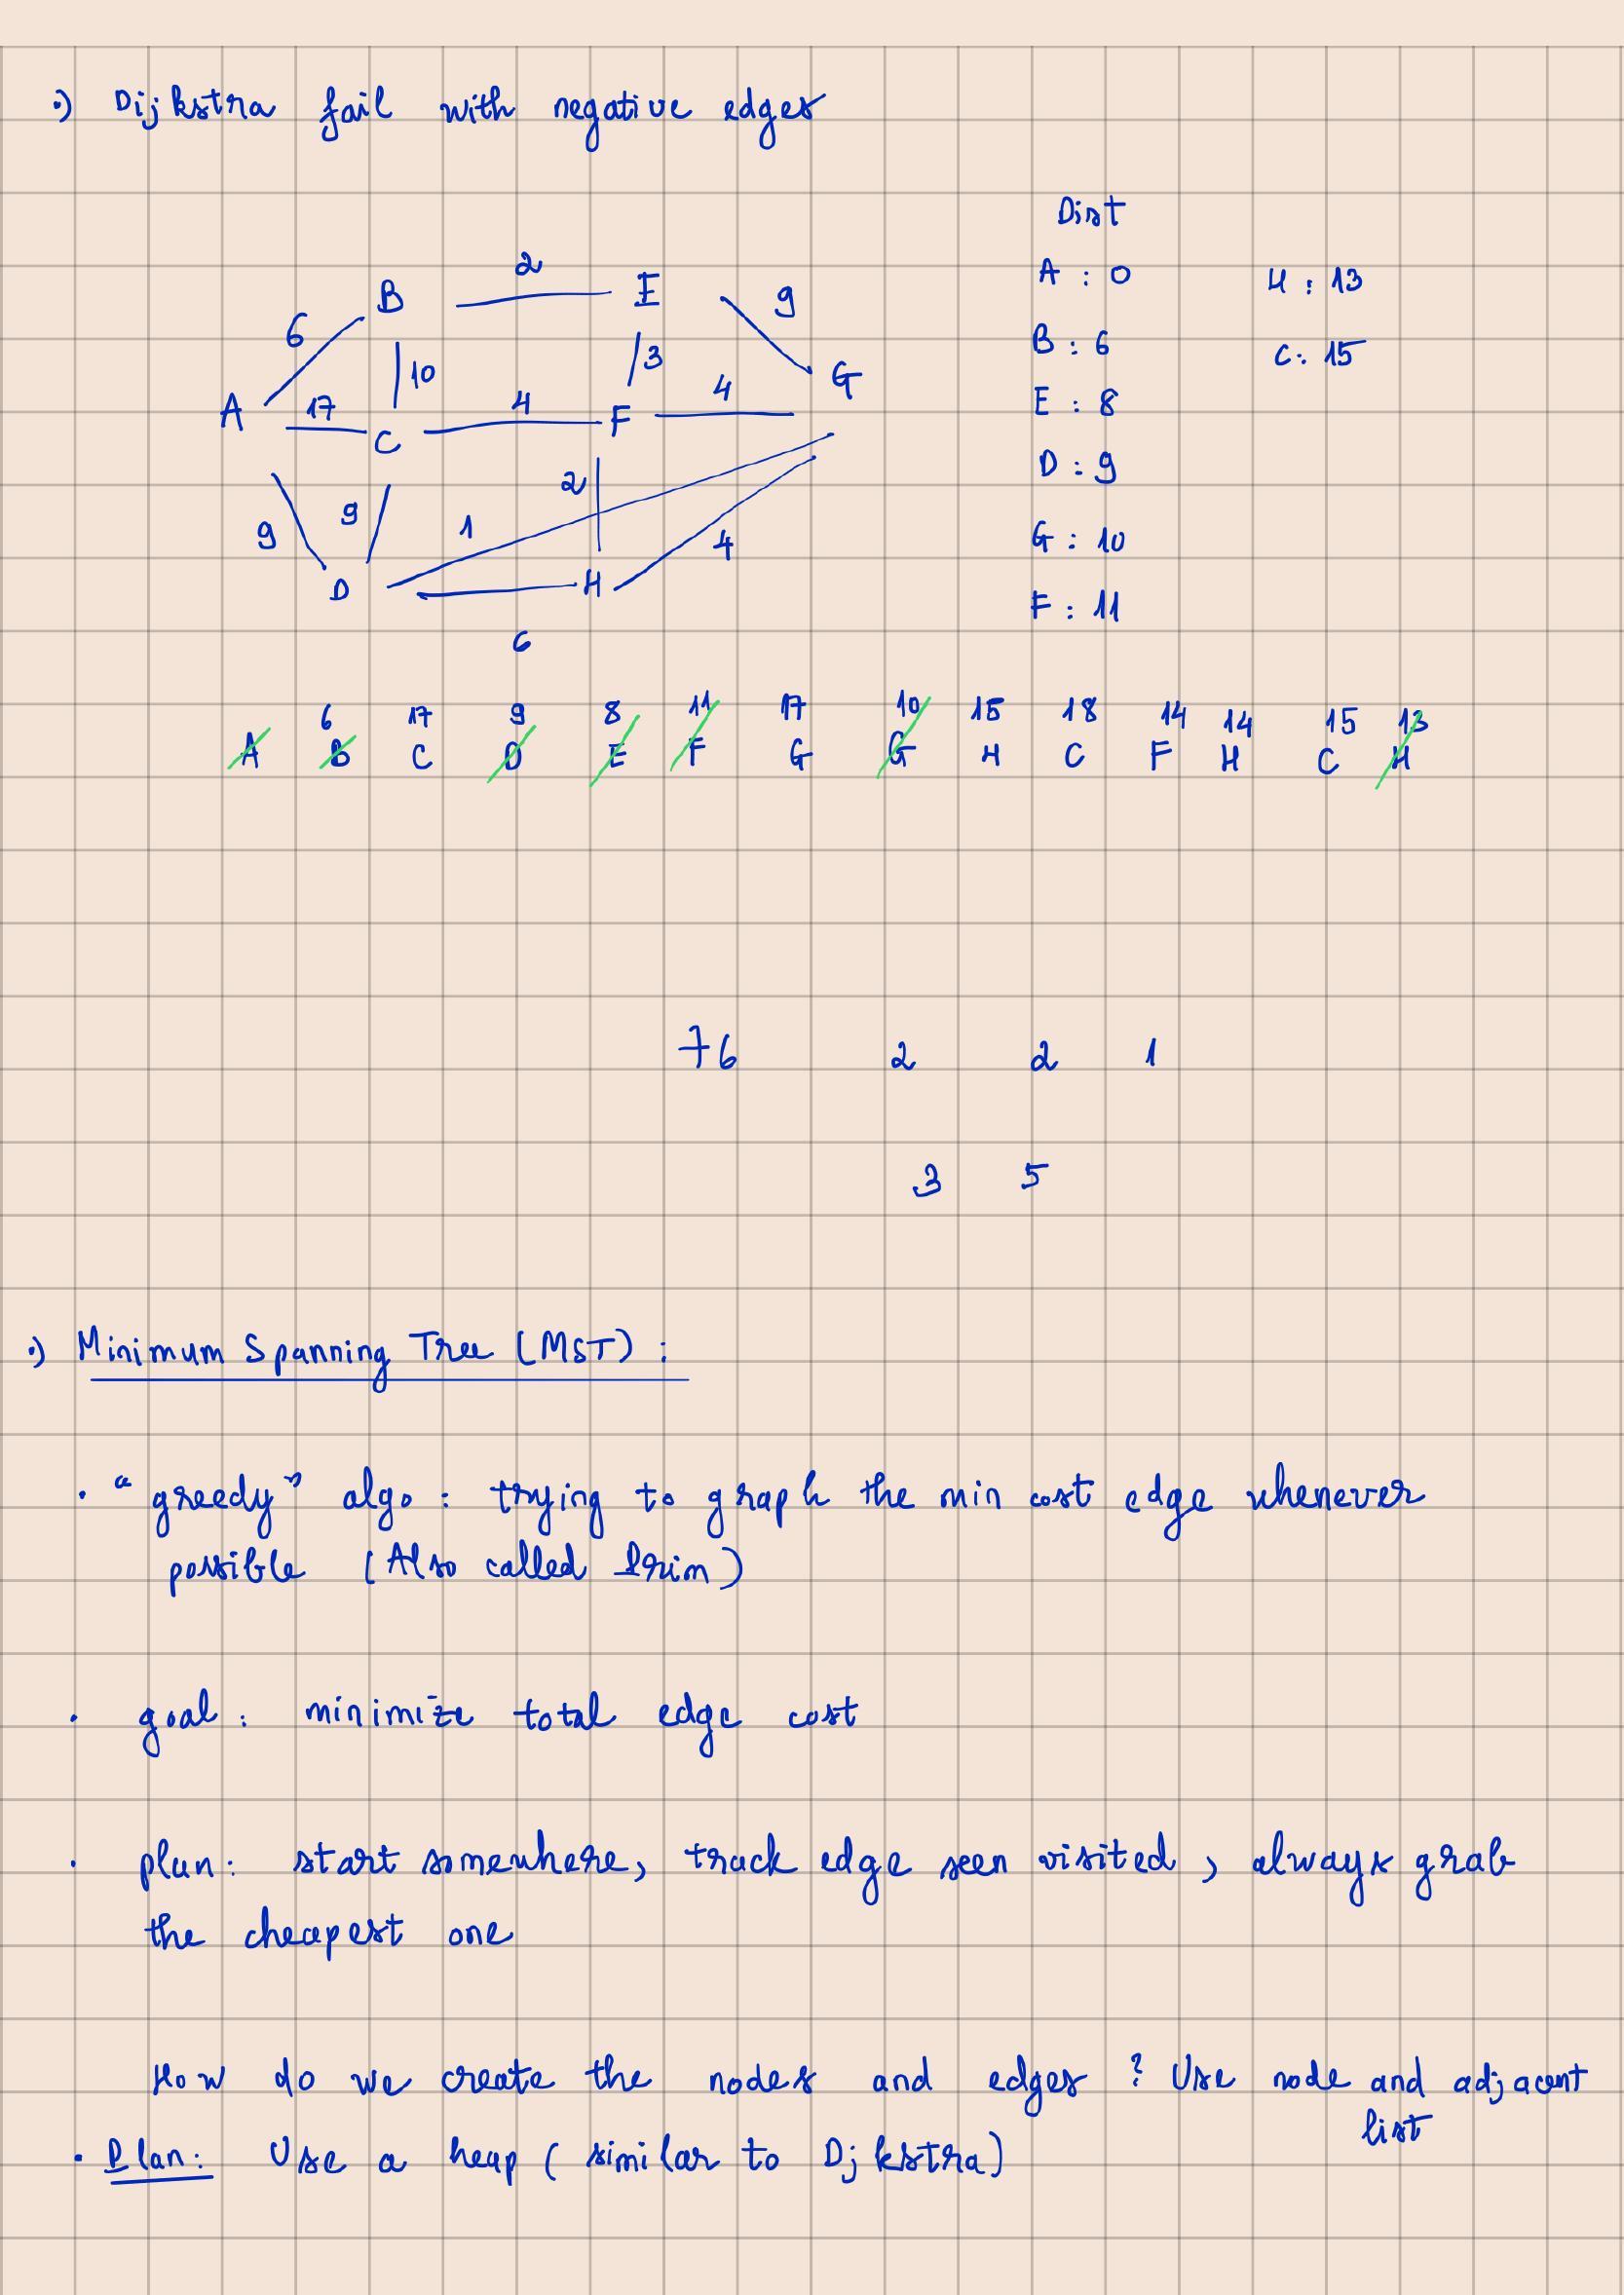 •) Dijkstra fail with negative edges
Dist
A : 0 H : 13
B : 6 C : 15
E : 8
D : 9
G : 10
F : 11
2
B E 9
6 10 3 G
A 17 4 F 4
C
2
9 9 1 4
D H
6
6 17 9 8 11 17 10 15 18 14 14 15 13
A B C D E F G G H C F H C H
76 2 2 1
3 5
•) Minimum Spanning Tree (MST) :
• "greedy" algo : trying to graph the min cost edge whenever
possible (Also called Prim)
• goal : minimize total edge cost
• plan : start somewhere, track edge seen visited, always grab
the cheapest one
How do we create the nodes and edges ? Use node and adjacent
list
• Plan : Use a heap ( similar to Djkstra)